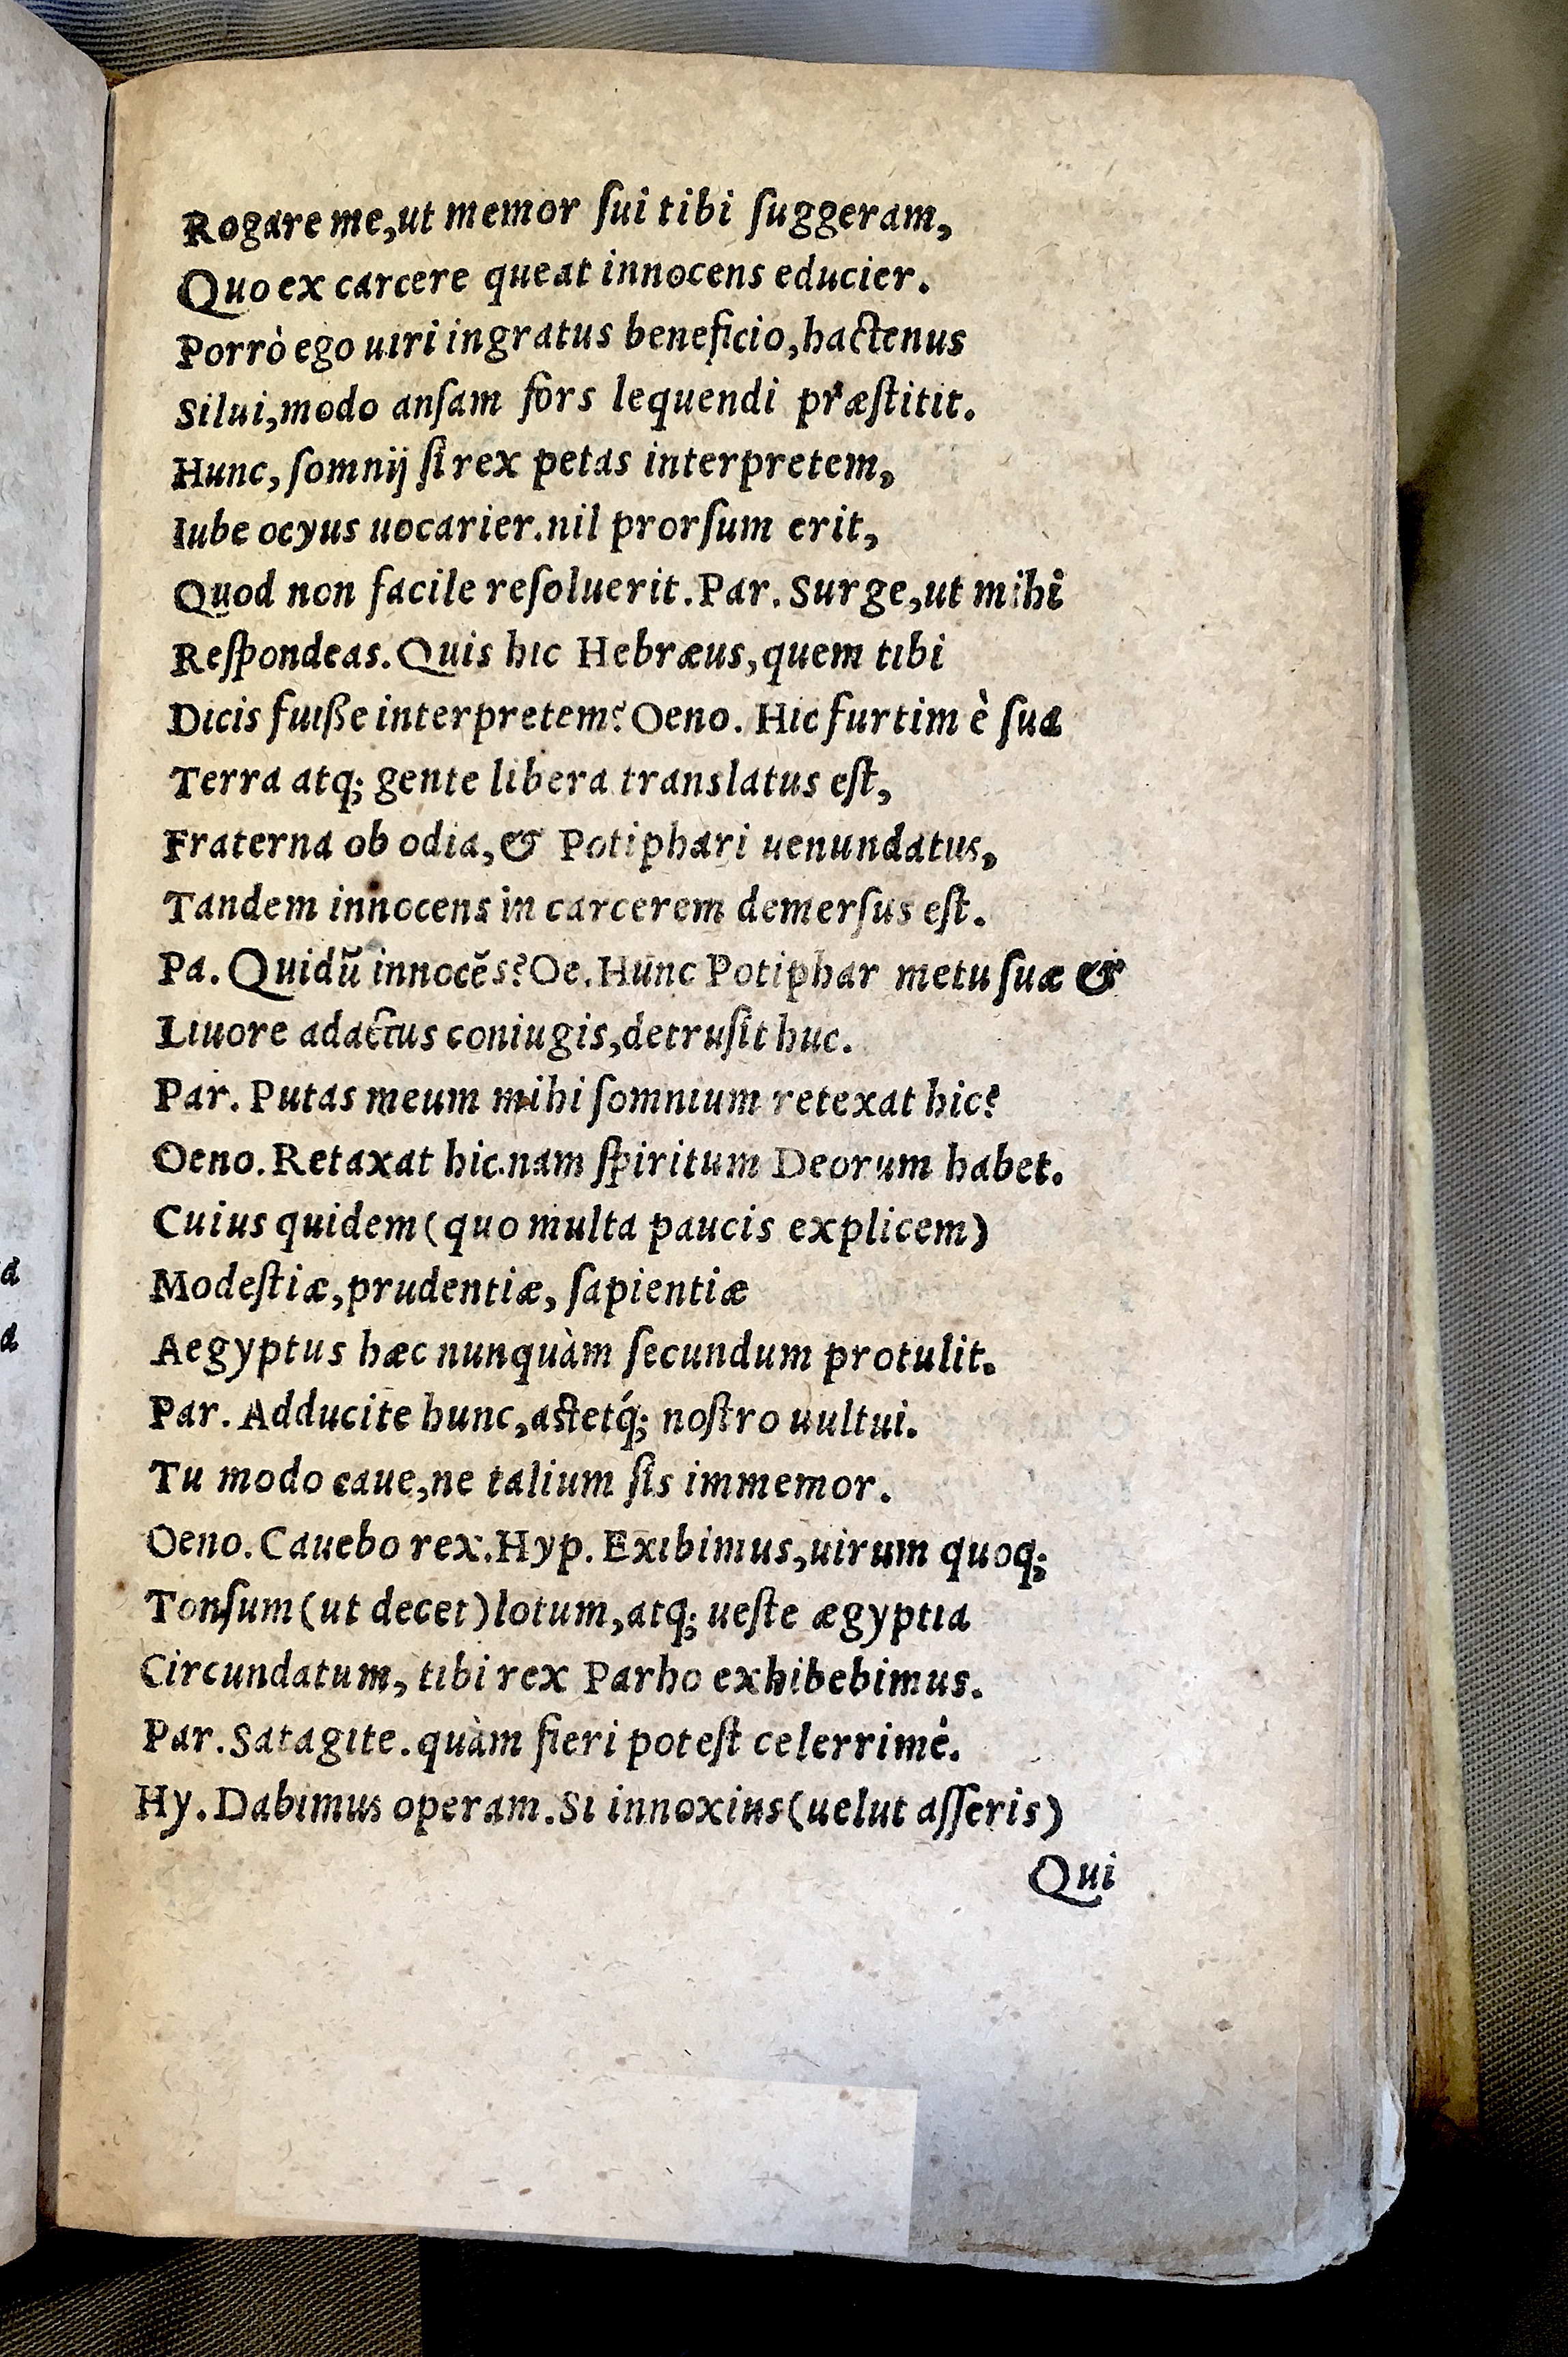 Rogare me,ut memor ſui tibi ſuggeram,
Quo ex carcere queat innocens educier.
Porrò ego uiri ingratus beneficio,hactenus
Silui,modo anſam fors lequendi præſtitit.
Hunc, ſomnij ſi rex petas interpretem,
Iube ocyus uocarier.nil prorſum erit,
Quod non facile reſoluerit.Par. Surge,ut mihi
Reſpondeas.Quis hic Hebræus,quem tibi
Dicis fuiße interpretem? Oeno. Hic furtim è ſua
Terra atq; gente libera translatus eſt,
Fraterna ob odia,& Potiphari uenundatus,
Tandem innocens in carcerem demerſus eſt.
Pa. Quidũ innocẽs? Oe. Hunc Potiphar metu ſuæ &
Liuore adactus coniugis,detruſit huc.
Par. Putas meum mihi ſomnium retexat hic?
Oeno. Retaxat hic.nam ſpiritum Deorum habet.
Cuius quidem (quo multa paucis explicem)
Modeſtiæ,prudentiæ, ſapientiæ
Aegyptus hæc nunquàm ſecundum protulit.
Par. Adducite hunc,aſtetq́; noſtro uultui.
Tu modo caue,ne talium ſis immemor.
Oeno. Cauebo rex.Hyp. Exibimus,uirum quoq;
Tonſum (ut decet) lotum,atq; ueſte ægyptia
Circundatum, tibi rex Parho exhibebimus.
Par. Satagite.quàm fieri poteſt celerrimè.
Hy. Dabimus operam. Si innoxius (uelut aſſeris)
Qui
a
a